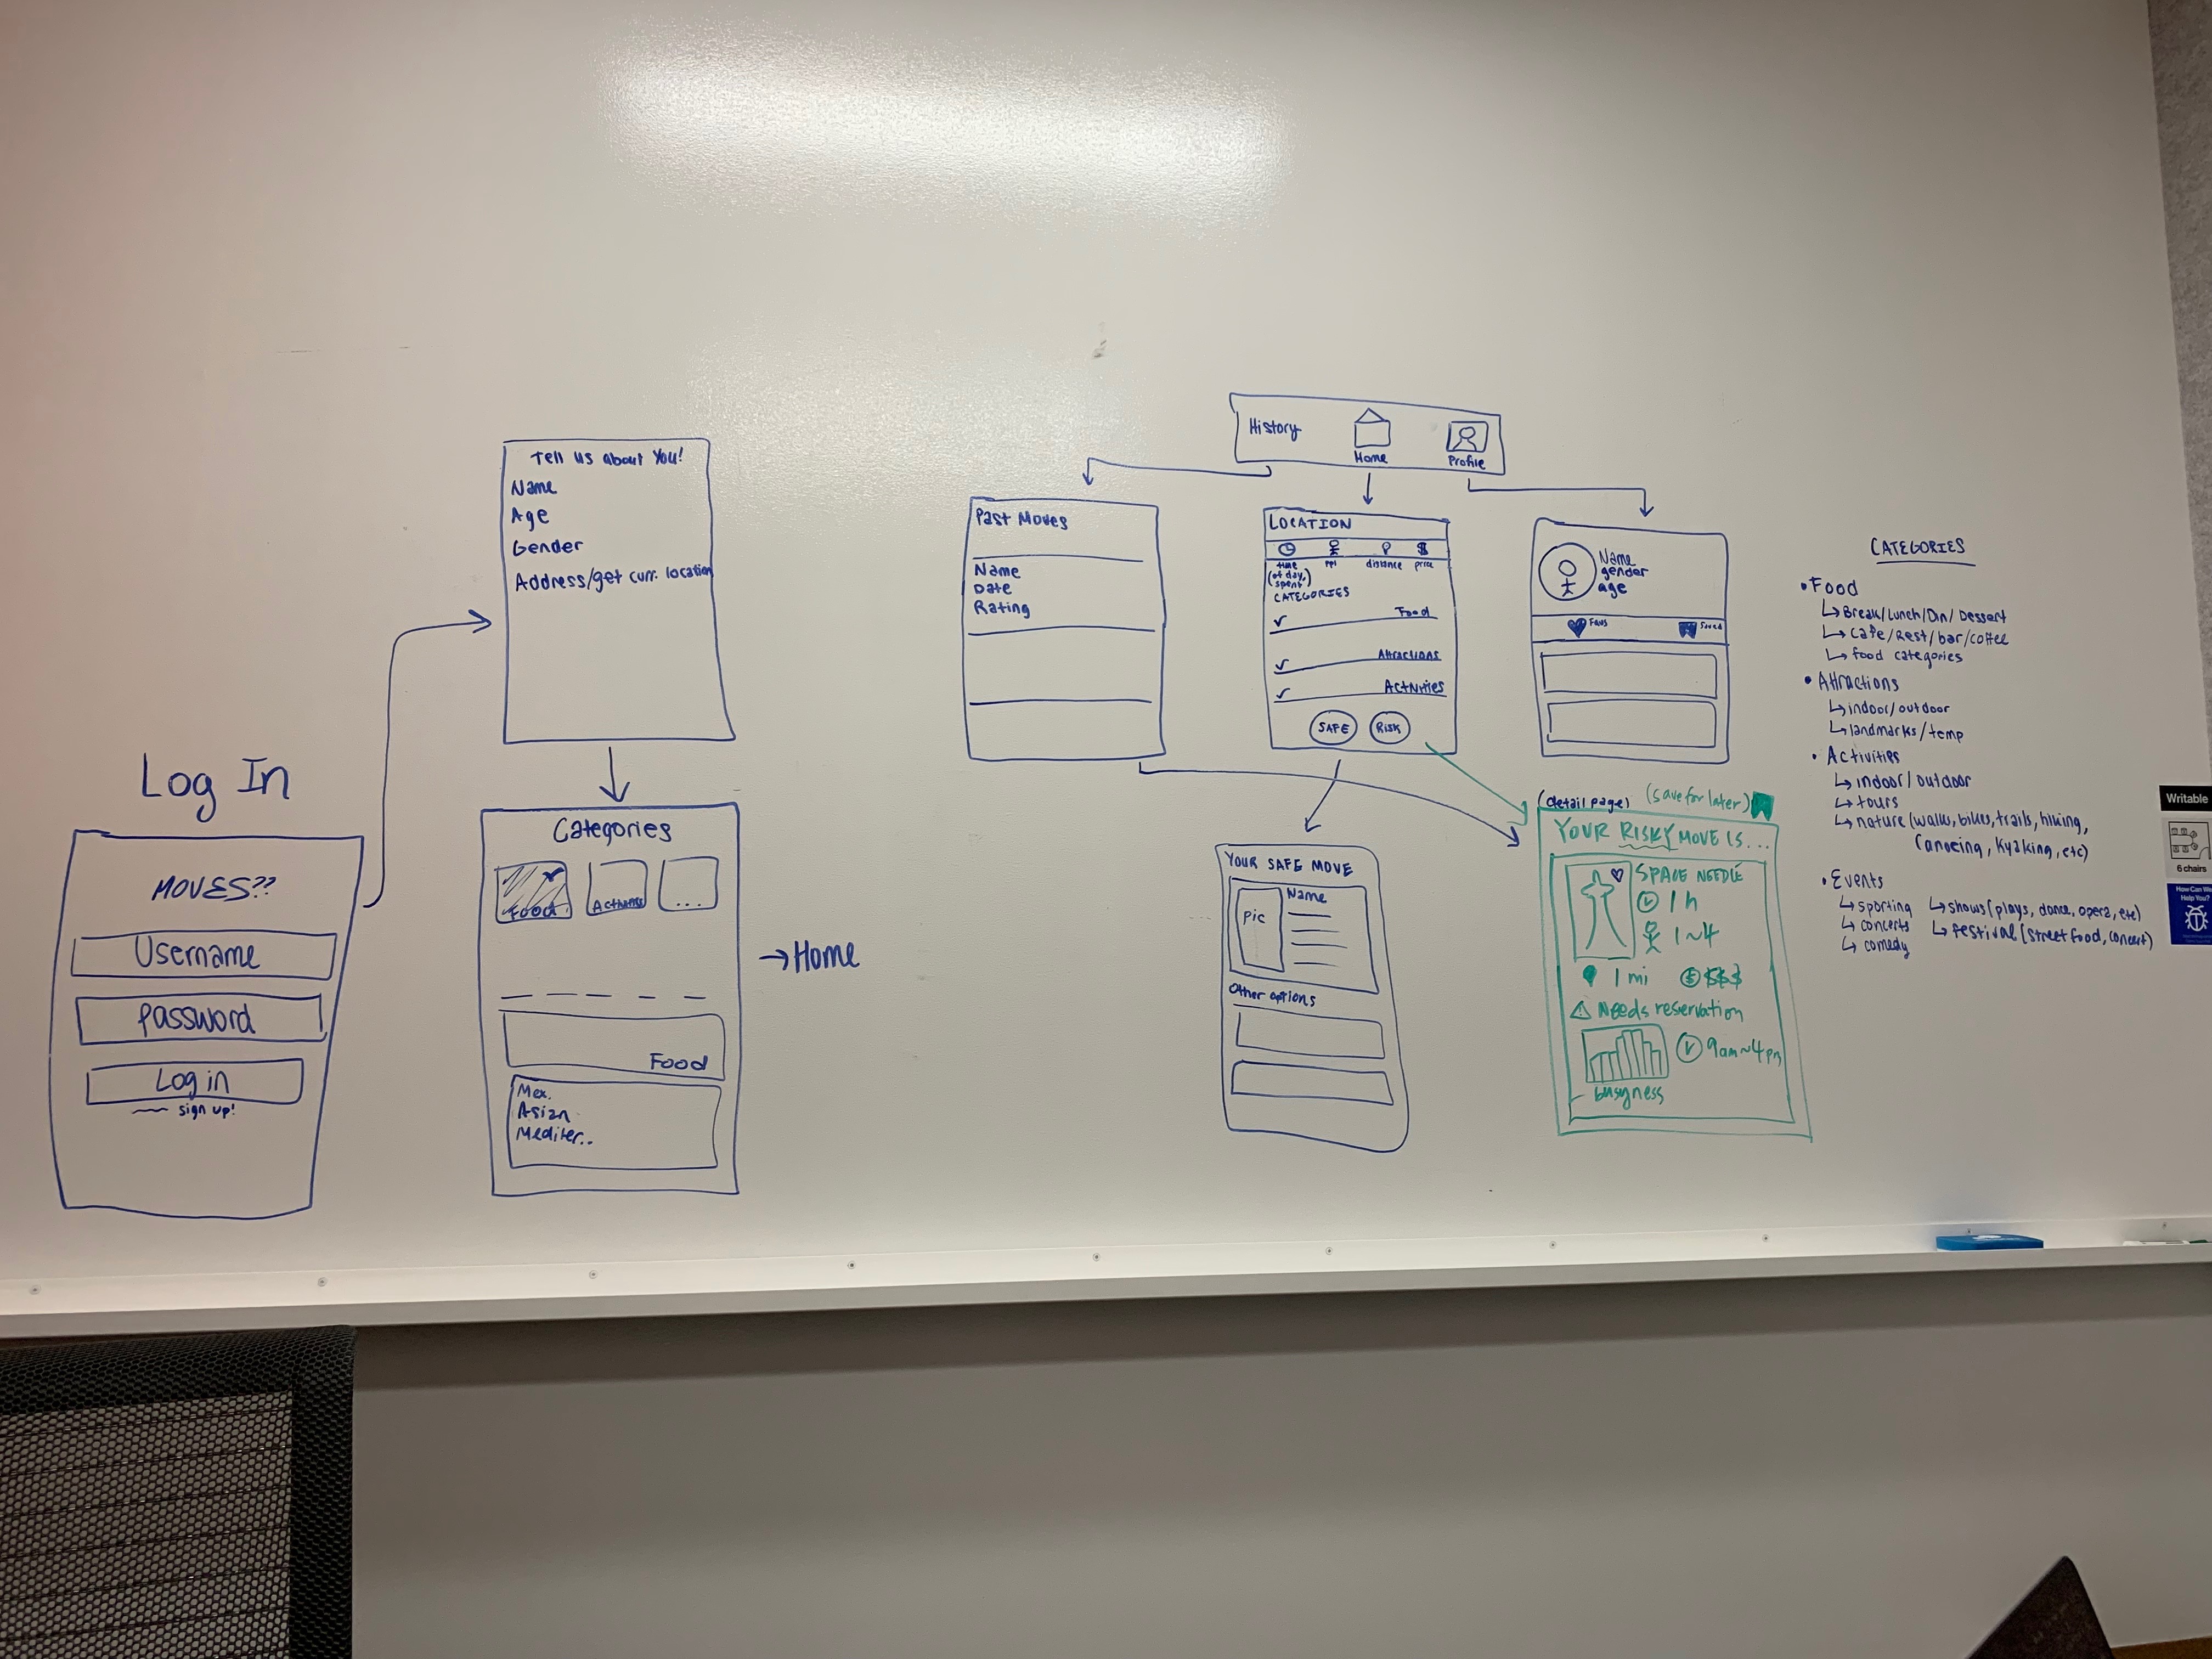 Log In
MOVES??
Username
password
Log in
sign up!
Tell us about You!
Name
Age
Gender
Address/get curr. location
Categories
Food
Activities
...
Food
Mex.
Asian
Mediter..
→Home
History
Home
Profile
Past Moves
Name
Date
Rating
LOCATION
time
(of day,
spent)
ppl
distance
price
CATEGORIES
Food
Attractions
Activities
SAFE
RISK
Name
gender
age
Favs
Saved
YOUR SAFE MOVE
pic
Name
Other options
(detail page)
(save for later)
YOUR RISKY MOVE IS...
SPACE NEEDLE
1 h
1~4
1 mi
$$$
Needs reservation
9am~4pm
busyness
CATEGORIES
• Food
↳ Break/Lunch/Din/Dessert
↳ cafe/Rest/bar/coffee
↳ food categories
• Attractions
↳ indoor/outdoor
↳ landmarks/temp
• Activities
↳ indoor/outdoor
↳ tours
↳ nature (walks, bikes, trails, hiking,
canoeing, kyaking, etc)
• Events
↳ sporting
↳ concerts
↳ comedy
↳ shows (plays, dance, opera, etc)
↳ festival (street food, concert)
Writable
6 chairs
How Can We
Help You?